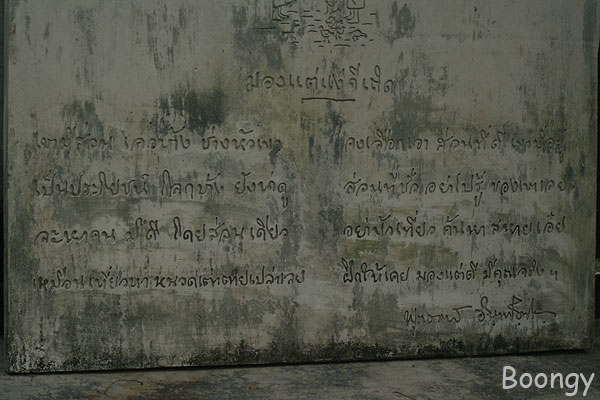 มองแต่แง่ดีเถิด
เขามีส่วน เลวบ้าง ช่างหัวเขา จงเลือกเอา ส่วนที่ดี เขามีอยู่
เป็นประโยชน์ โลกบ้าง ยังน่าดู ส่วนที่ชั่ว อย่าไปรู้ ของเขาเลย
จะหาคน มีดี โดยส่วนเดียว อย่ามัวเที่ยว ค้นหา สหายเอ๋ย
เหมือนเที่ยวหา หนวดเต่า ตายเปล่าเลย ฝึกให้เคย มองแต่ดี มีคุณจริง ๆ
พุทธทาส อินทปัญโญ
Boongy